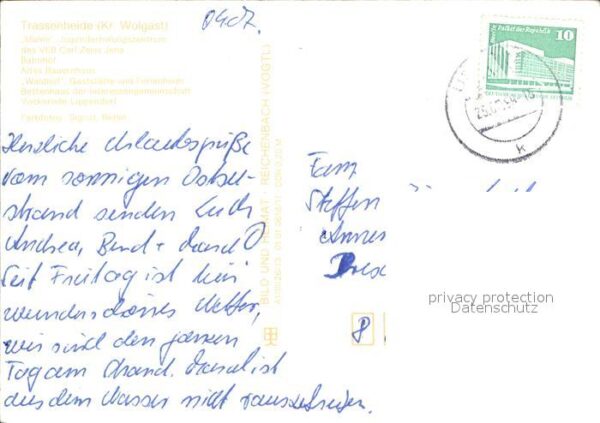 Trassenheide (Kr. Wolgast)
des VEB Carl Zeiss Jena
Bahnhof
Altes Bauernhaus
"Waldhof", Gaststätte und Ferienheim
Bettenhaus der Interessengemeinschaft
Farbfotos: Sigrist, Berlin
BILD UND HEIMAT REICHENBACH (VOGTL)
Palast der Republik
10
k
Herzliche Urlaubsgrüße
vom sonnigen Ostsee-
strand senden Euch
Andrea, Bernd +
Seit Freitag ist hier
wunderschönes Wetter,
wir sind den ganzen
Tag am Strand. ist
aus dem Wasser nicht rauszukriegen.
Fam
Steffen
8
privacy protection
Datenschutz